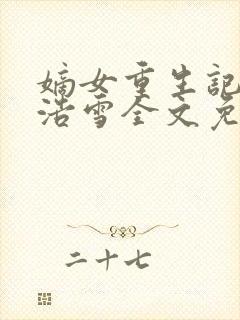 嫡女重生記
浩雪全文免
二十七